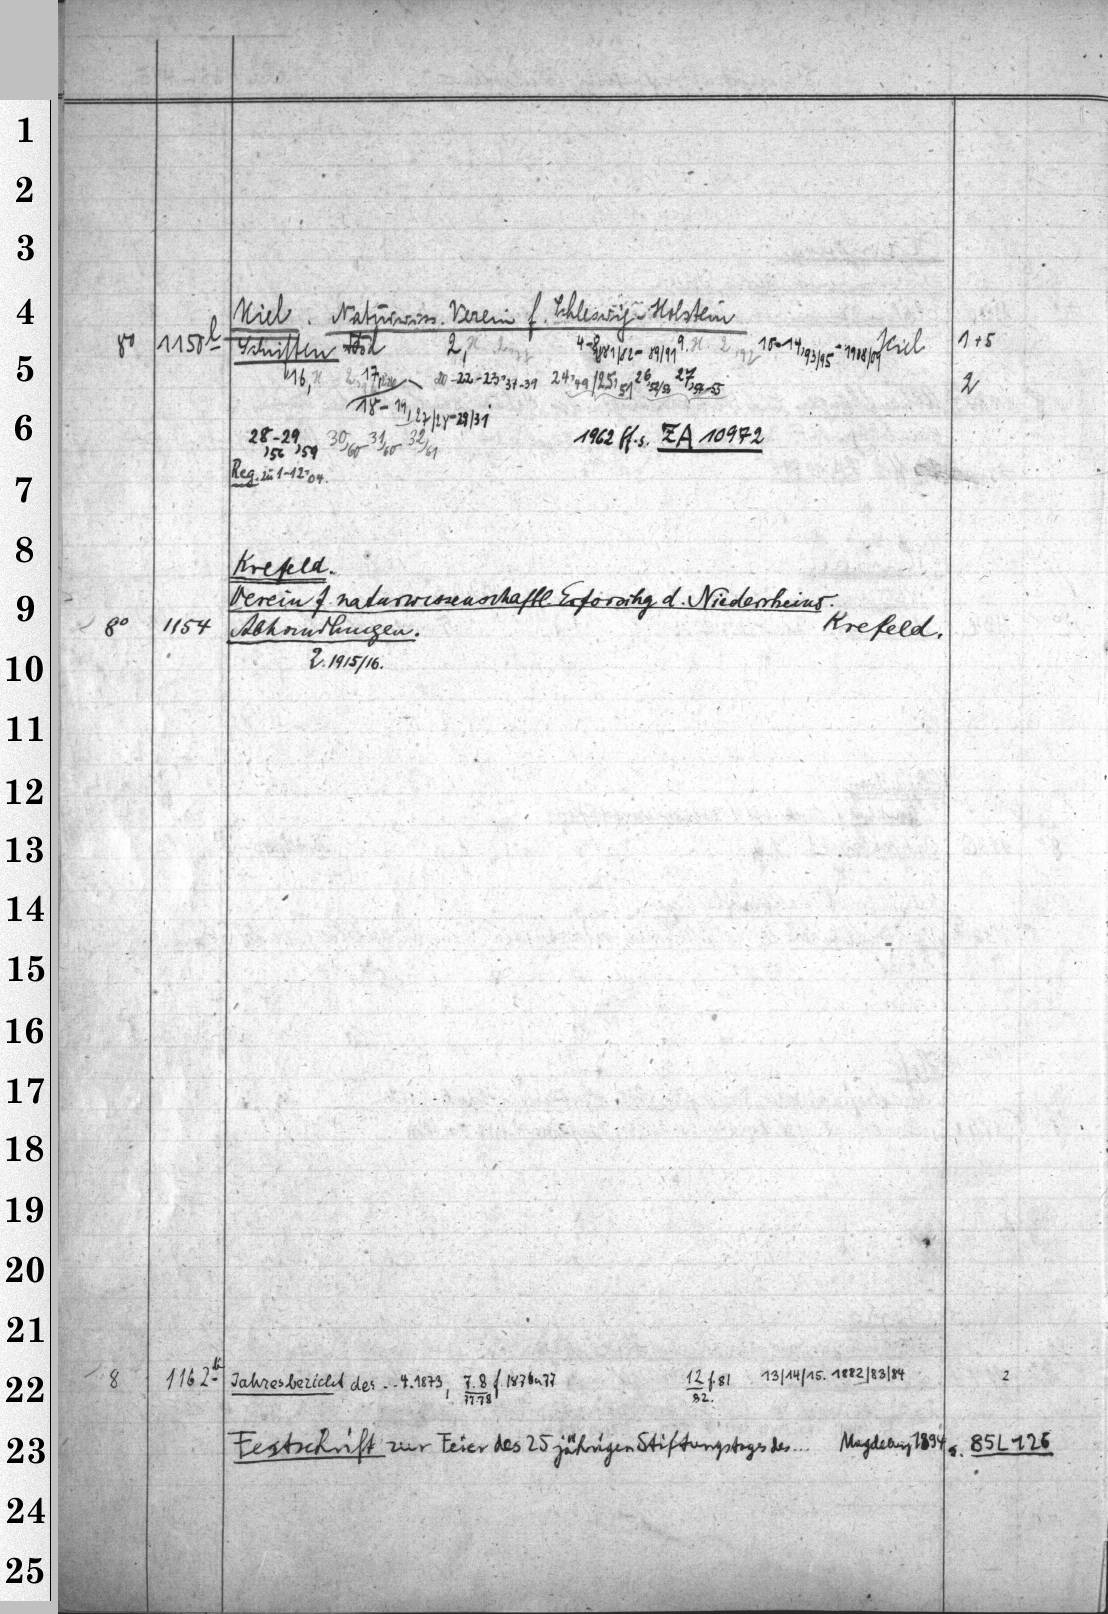 1
2
3
4 Kiel. Naturwiss. Verein f. Schleswig-Holstein
8° 1150 Schriften 2, 4-8,81/82-89/91 9. 10-14,93/95-1908/09 Kiel 1+5
5 16, 17, 20-22-23,37-39 24,49/25,51 26,52/53 27, 2
18-19,27/28-29/31
6 28-29 30,60 31,60 32,61 1962 ff. s. ZA 10972
,56 ,59
7 Reg. zu 1-12,04.
8 Krefeld.
9 Verein f. naturwissenschaftl. Erforschg d. Niederrheins.
8° 1154 Abhandlungen. Krefeld.
10 2.1915/16.
11
12
13
14
15
16
17
18
19
20
21
22 8 1162 Jahresbericht des... 4.1873, 7.8 f. 1876u77 12 f 81 13/14/15. 1882/83/84 2
77.78 82.
23 Festschrift zur Feier des 25 jährigen Stiftungstages des... Magdeburg 1894 s. 85 L 126
24
25